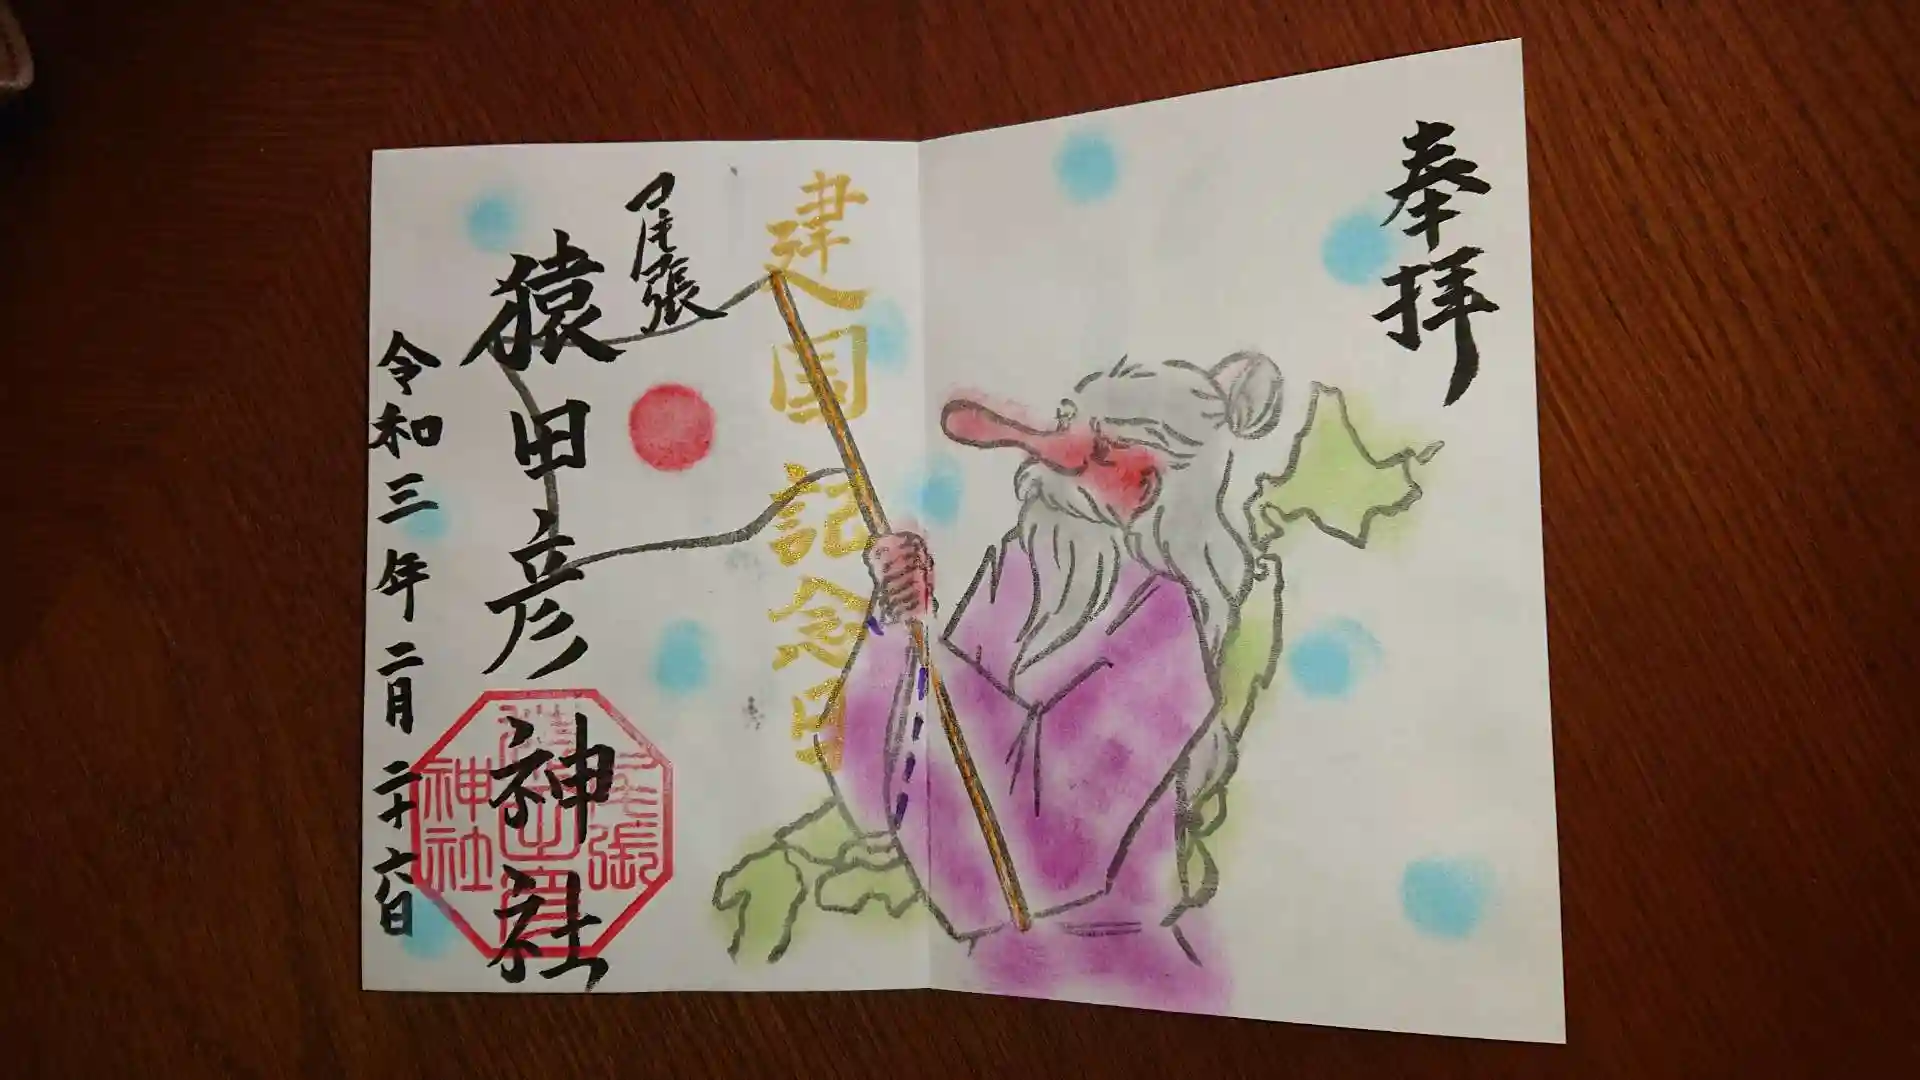 奉拝
建国記念日
尾張
猿田彦神社
尾張
神社
令和三年二月二十六日